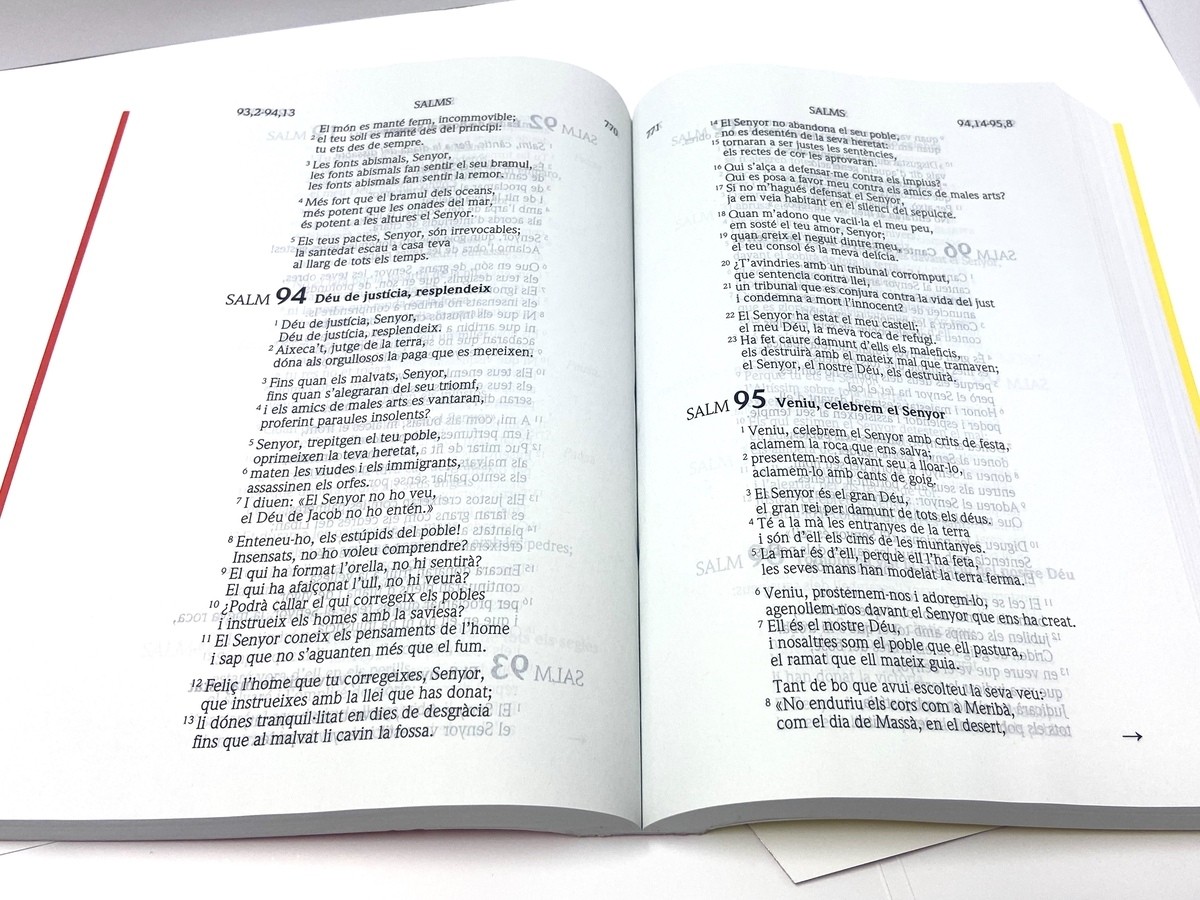 93,2-94,13
SALMS
770
El món es manté ferm, incommovible;
2 el teu soli es manté des del principi:
tu ets des de sempre.
3 Les fonts abismals, Senyor,
les fonts abismals fan sentir el seu bramul,
les fonts abismals fan sentir la remor.
4 Més fort que el bramul dels oceans,
més potent que les onades del mar,
és potent a les altures el Senyor.
5 Els teus pactes, Senyor, són irrevocables;
la santedat escau a casa teva
al llarg de tots els temps.
SALM 94 Déu de justícia, resplendeix
1 Déu de justícia, Senyor,
Déu de justícia, resplendeix.
2 Aixeca't, jutge de la terra,
dóna als orgullosos la paga que es mereixen.
3 Fins quan els malvats, Senyor,
fins quan s'alegraran del seu triomf,
4 i els amics de males arts es vantaran,
proferint paraules insolents?
5 Senyor, trepitgen el teu poble,
oprimeixen la teva heretat,
6 maten les viudes i els immigrants,
assassinen els orfes.
7 I diuen: «El Senyor no ho veu,
el Déu de Jacob no ho entén.»
8 Enteneu-ho, els estúpids del poble!
Insensats, no ho voleu comprendre?
9 El qui ha format l'orella, no hi sentirà?
El qui ha afaiçonat l'ull, no hi veurà?
10 ¿Podrà callar el qui corregeix els pobles
i instrueix els homes amb la saviesa?
11 El Senyor coneix els pensaments de l'home
i sap que no s'aguanten més que el fum.
12 Feliç l'home que tu corregeixes, Senyor,
que instrueixes amb la llei que has donat;
13 li dónes tranquil·litat en dies de desgràcia
fins que al malvat li cavin la fossa.
771
SALMS
94,14-95,8
14 El Senyor no abandona el seu poble,
no es desentén de la seva heretat:
15 tornaran a ser justes les sentències,
els rectes de cor les aprovaran.
16 Qui s'alça a defensar-me contra els impius?
Qui es posa a favor meu contra els amics de males arts?
17 Si no m'hagués defensat el Senyor,
ja em veia habitant en el silenci del sepulcre.
18 Quan m'adono que vacil·la el meu peu,
em sosté el teu amor, Senyor;
19 quan creix el neguit dintre meu,
el teu consol és la meva delícia.
20 ¿T'avindries amb un tribunal corromput,
que sentencia contra llei,
21 un tribunal que es conjura contra la vida del just
i condemna a mort l'innocent?
22 El Senyor ha estat el meu castell;
el meu Déu, la meva roca de refugi.
23 Ha fet caure damunt d'ells els maleficis,
els destruirà amb el mateix mal que tramaven;
el Senyor, el nostre Déu, els destruirà.
SALM 95 Veniu, celebrem el Senyor
1 Veniu, celebrem el Senyor amb crits de festa,
aclamem la roca que ens salva;
2 presentem-nos davant seu a lloar-lo,
aclamem-lo amb cants de goig.
3 El Senyor és el gran Déu,
el gran rei per damunt de tots els déus.
4 Té a la mà les entranyes de la terra
i són d'ell els cims de les muntanyes.
5 La mar és d'ell, perquè ell l'ha feta,
les seves mans han modelat la terra ferma.
6 Veniu, prosternem-nos i adorem-lo,
agenollem-nos davant el Senyor que ens ha creat.
7 Ell és el nostre Déu,
i nosaltres som el poble que ell pastura,
el ramat que ell mateix guia.
Tant de bo que avui escolteu la seva veu:
8 «No enduriu els cors com a Meribà,
com el dia de Massà, en el desert,
→